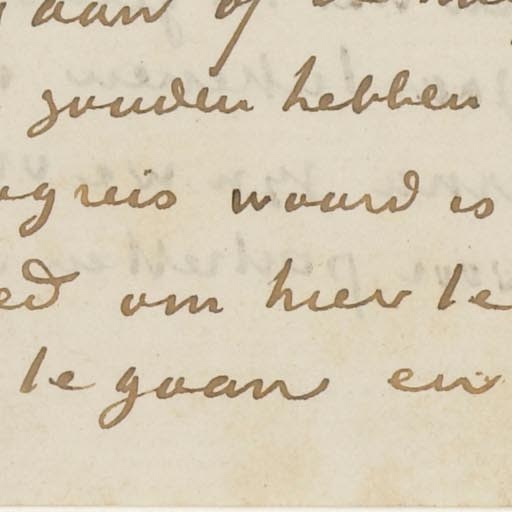 gaan of
zouden hebben
reis waard is
om hier te
te gaan en